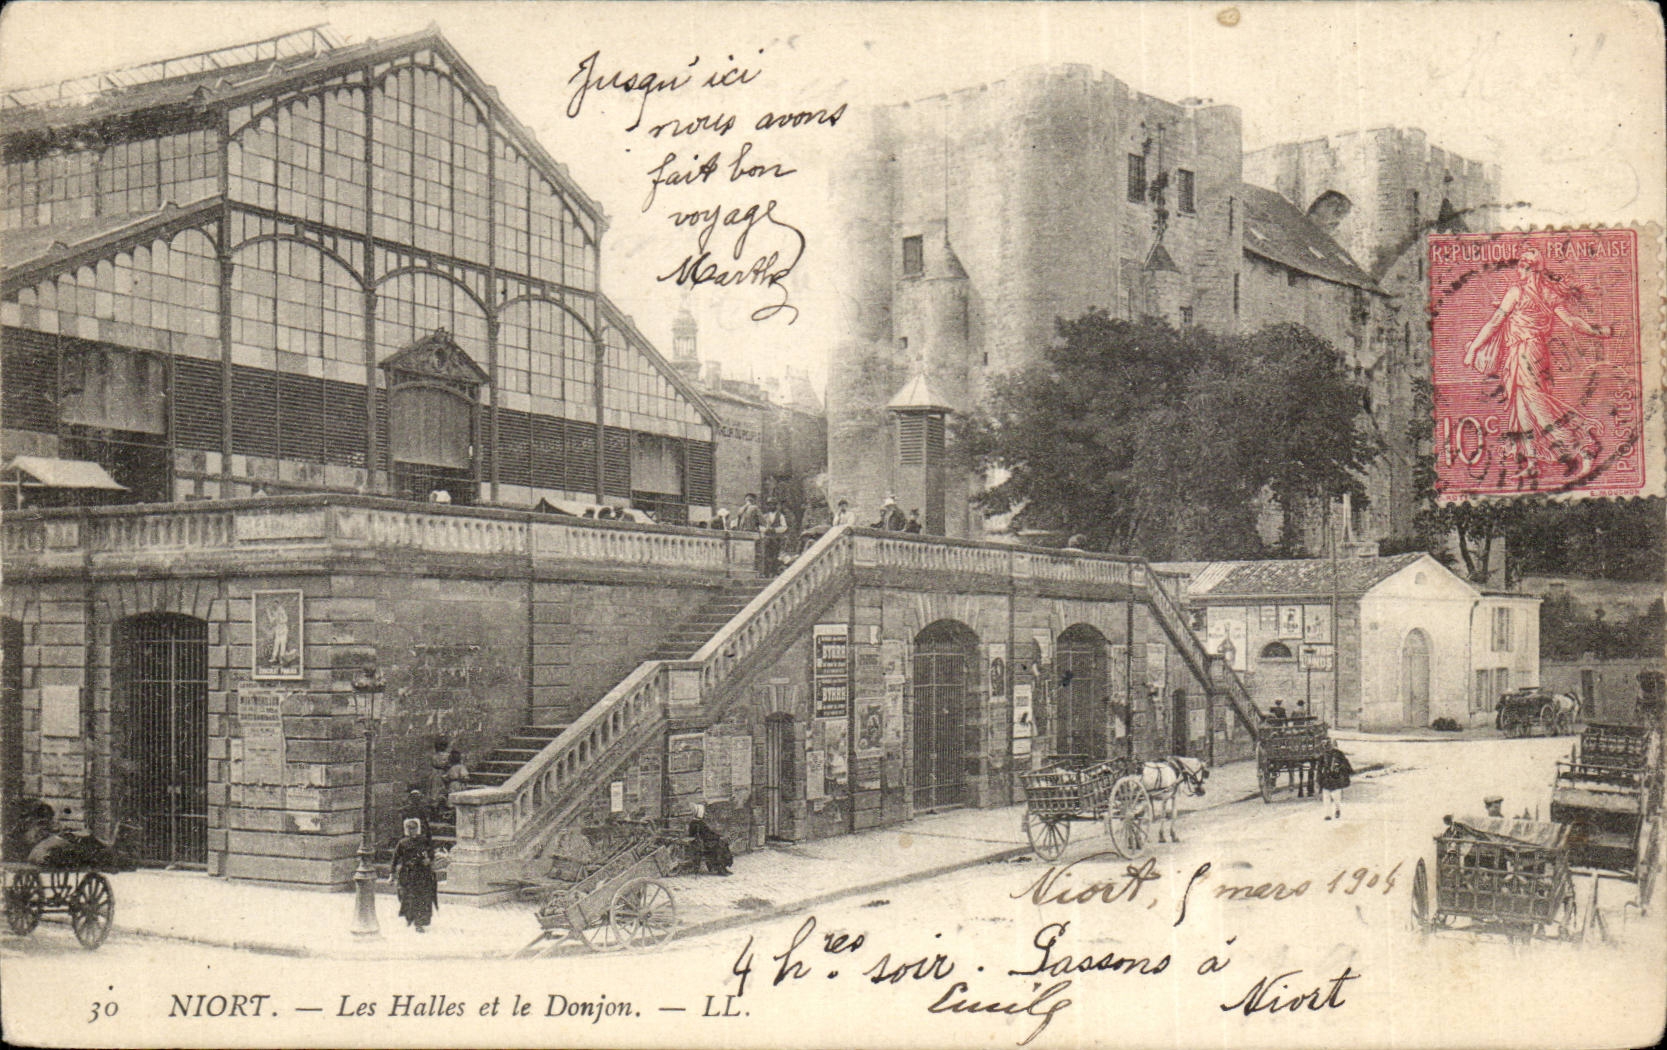 Jusqu'ici
nous avons
fait bon
voyage
Marthe
REPUBLIQUE FRANÇAISE
10c
POSTES
BYRRH
BYRRH
Niort, 5 mars 1904
4 hres soir. Passons à
Niort
Emile
30 NIORT. — Les Halles et le Donjon. — LL.